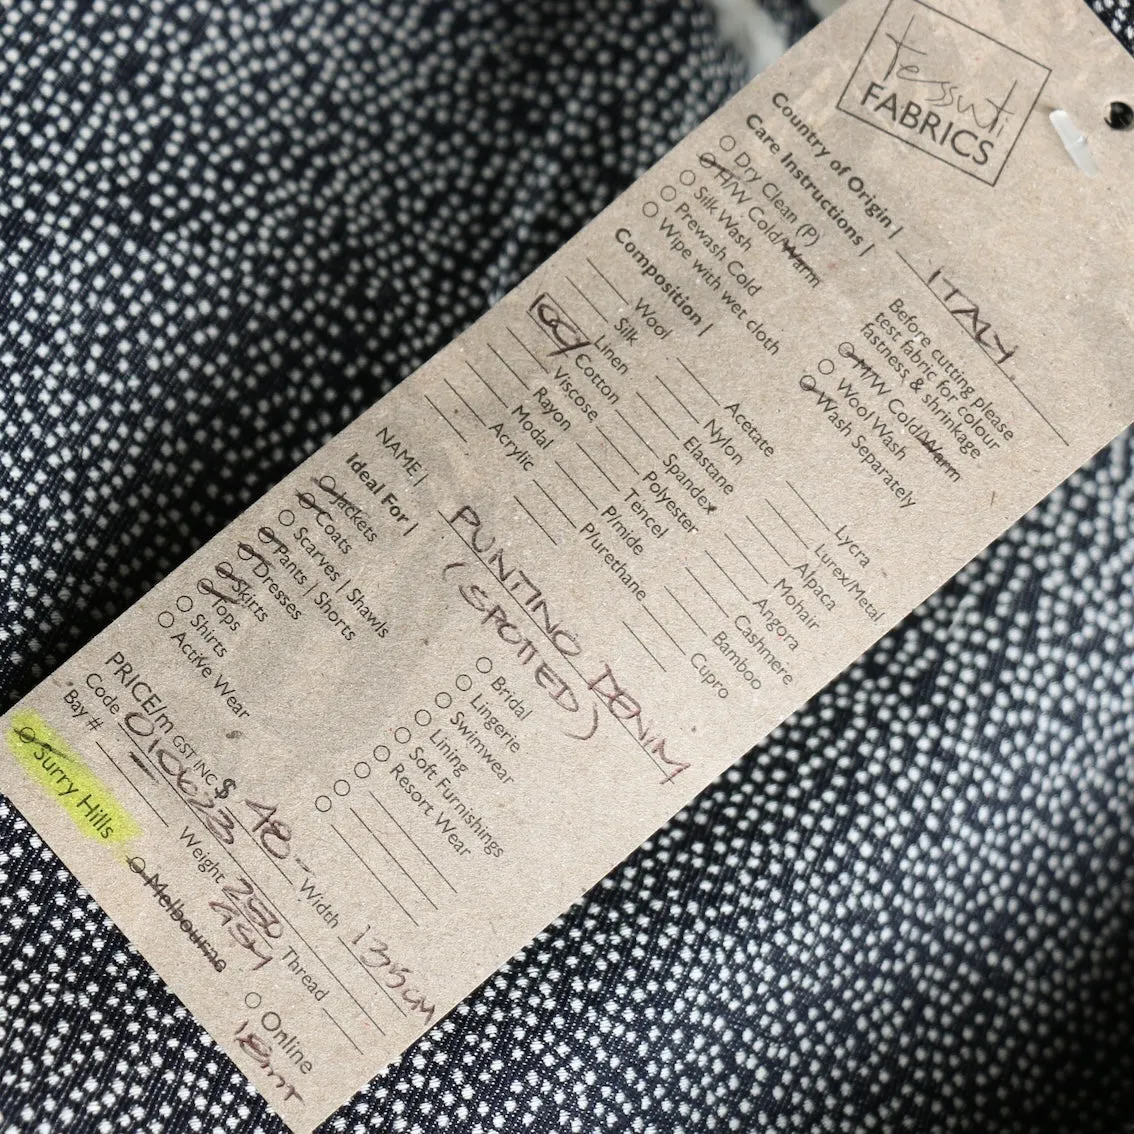 tessuti
FABRICS
Country of Origin | ITALY
Care Instructions |
Dry Clean (P)
H/W Cold/Warm
Silk Wash
Prewash Cold
Wipe with wet cloth
Before cutting please
test fabric for colour
fastness & shrinkage
M/W Cold/Warm
Wool Wash
Wash Separately
Composition |
Wool
Silk
Linen
Cotton
Viscose
Rayon
Modal
Acrylic
Acetate
Nylon
Elastane
Spandex
Polyester
Tencel
P/mide
P/urethane
Lycra
Lurex/Metal
Alpaca
Mohair
Angora
Cashmere
Bamboo
Cupro
NAME | PUNTINO DENIM
(SPOTTED)
Ideal For |
Jackets
Coats
Scarves | Shawls
Pants | Shorts
Dresses
Skirts
Tops
Shirts
Active Wear
Bridal
Lingerie
Swimwear
Lining
Soft Furnishings
Resort Wear
PRICE/m GST INC $ 48- Width 135CM
Code 010623 Weight 250 GSM Thread
Bay #
Surry Hills
Melbourne
Online
18mt